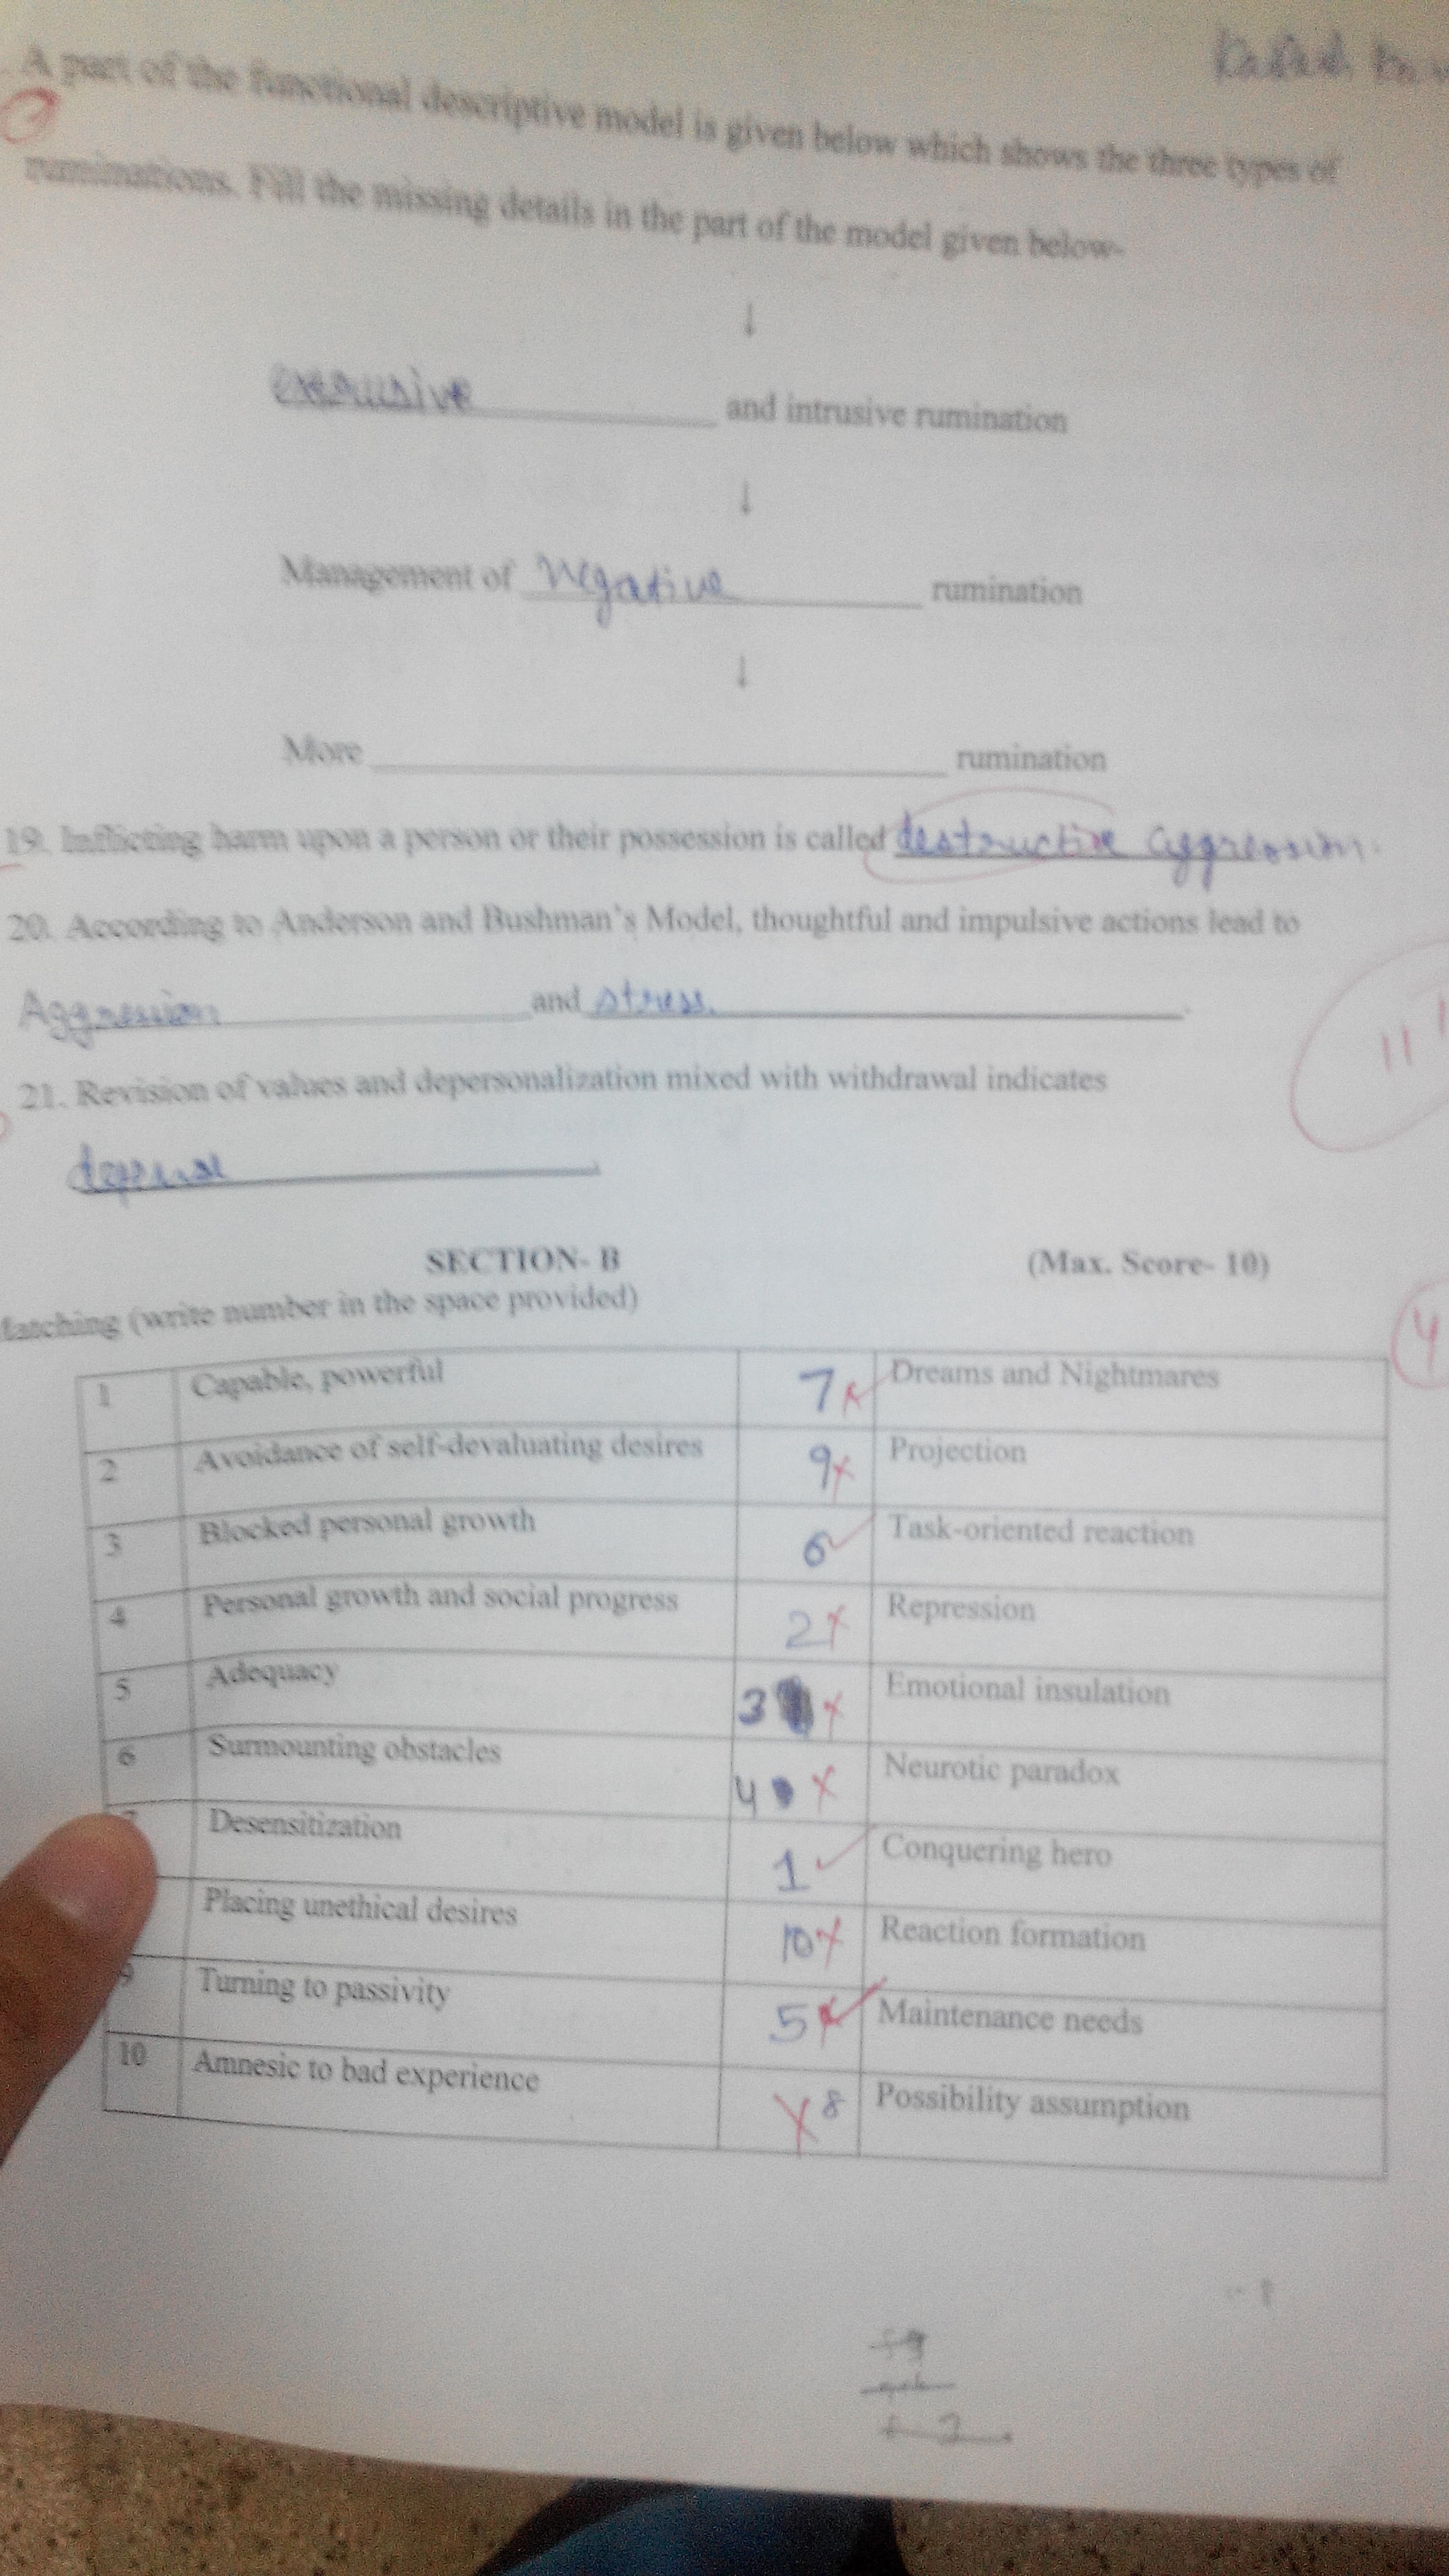 A part of the functional descriptive model is given below which shows the three types of
ruminations. Fill the missing details in the part of the model given below-
↓
and intrusive rumination
↓
Management of Negative rumination
↓
More rumination
19. Inflicting harm upon a person or their possession is called destructive aggression.
20. According to Anderson and Bushman's Model, thoughtful and impulsive actions lead to
Aggression and stress.
21. Revision of values and depersonalization mixed with withdrawal indicates
SECTION- B (Max. Score- 10)
Matching (write number in the space provided)
4
1 Capable, powerful 7 Dreams and Nightmares
2 Avoidance of self-devaluating desires 9 Projection
3 Blocked personal growth 6 Task-oriented reaction
4 Personal growth and social progress 2 Repression
5 Adequacy 3 Emotional insulation
6 Surmounting obstacles 4 Neurotic paradox
Desensitization 1 Conquering hero
Placing unethical desires 10 Reaction formation
9 Turning to passivity 5 Maintenance needs
10 Amnesic to bad experience 8 Possibility assumption